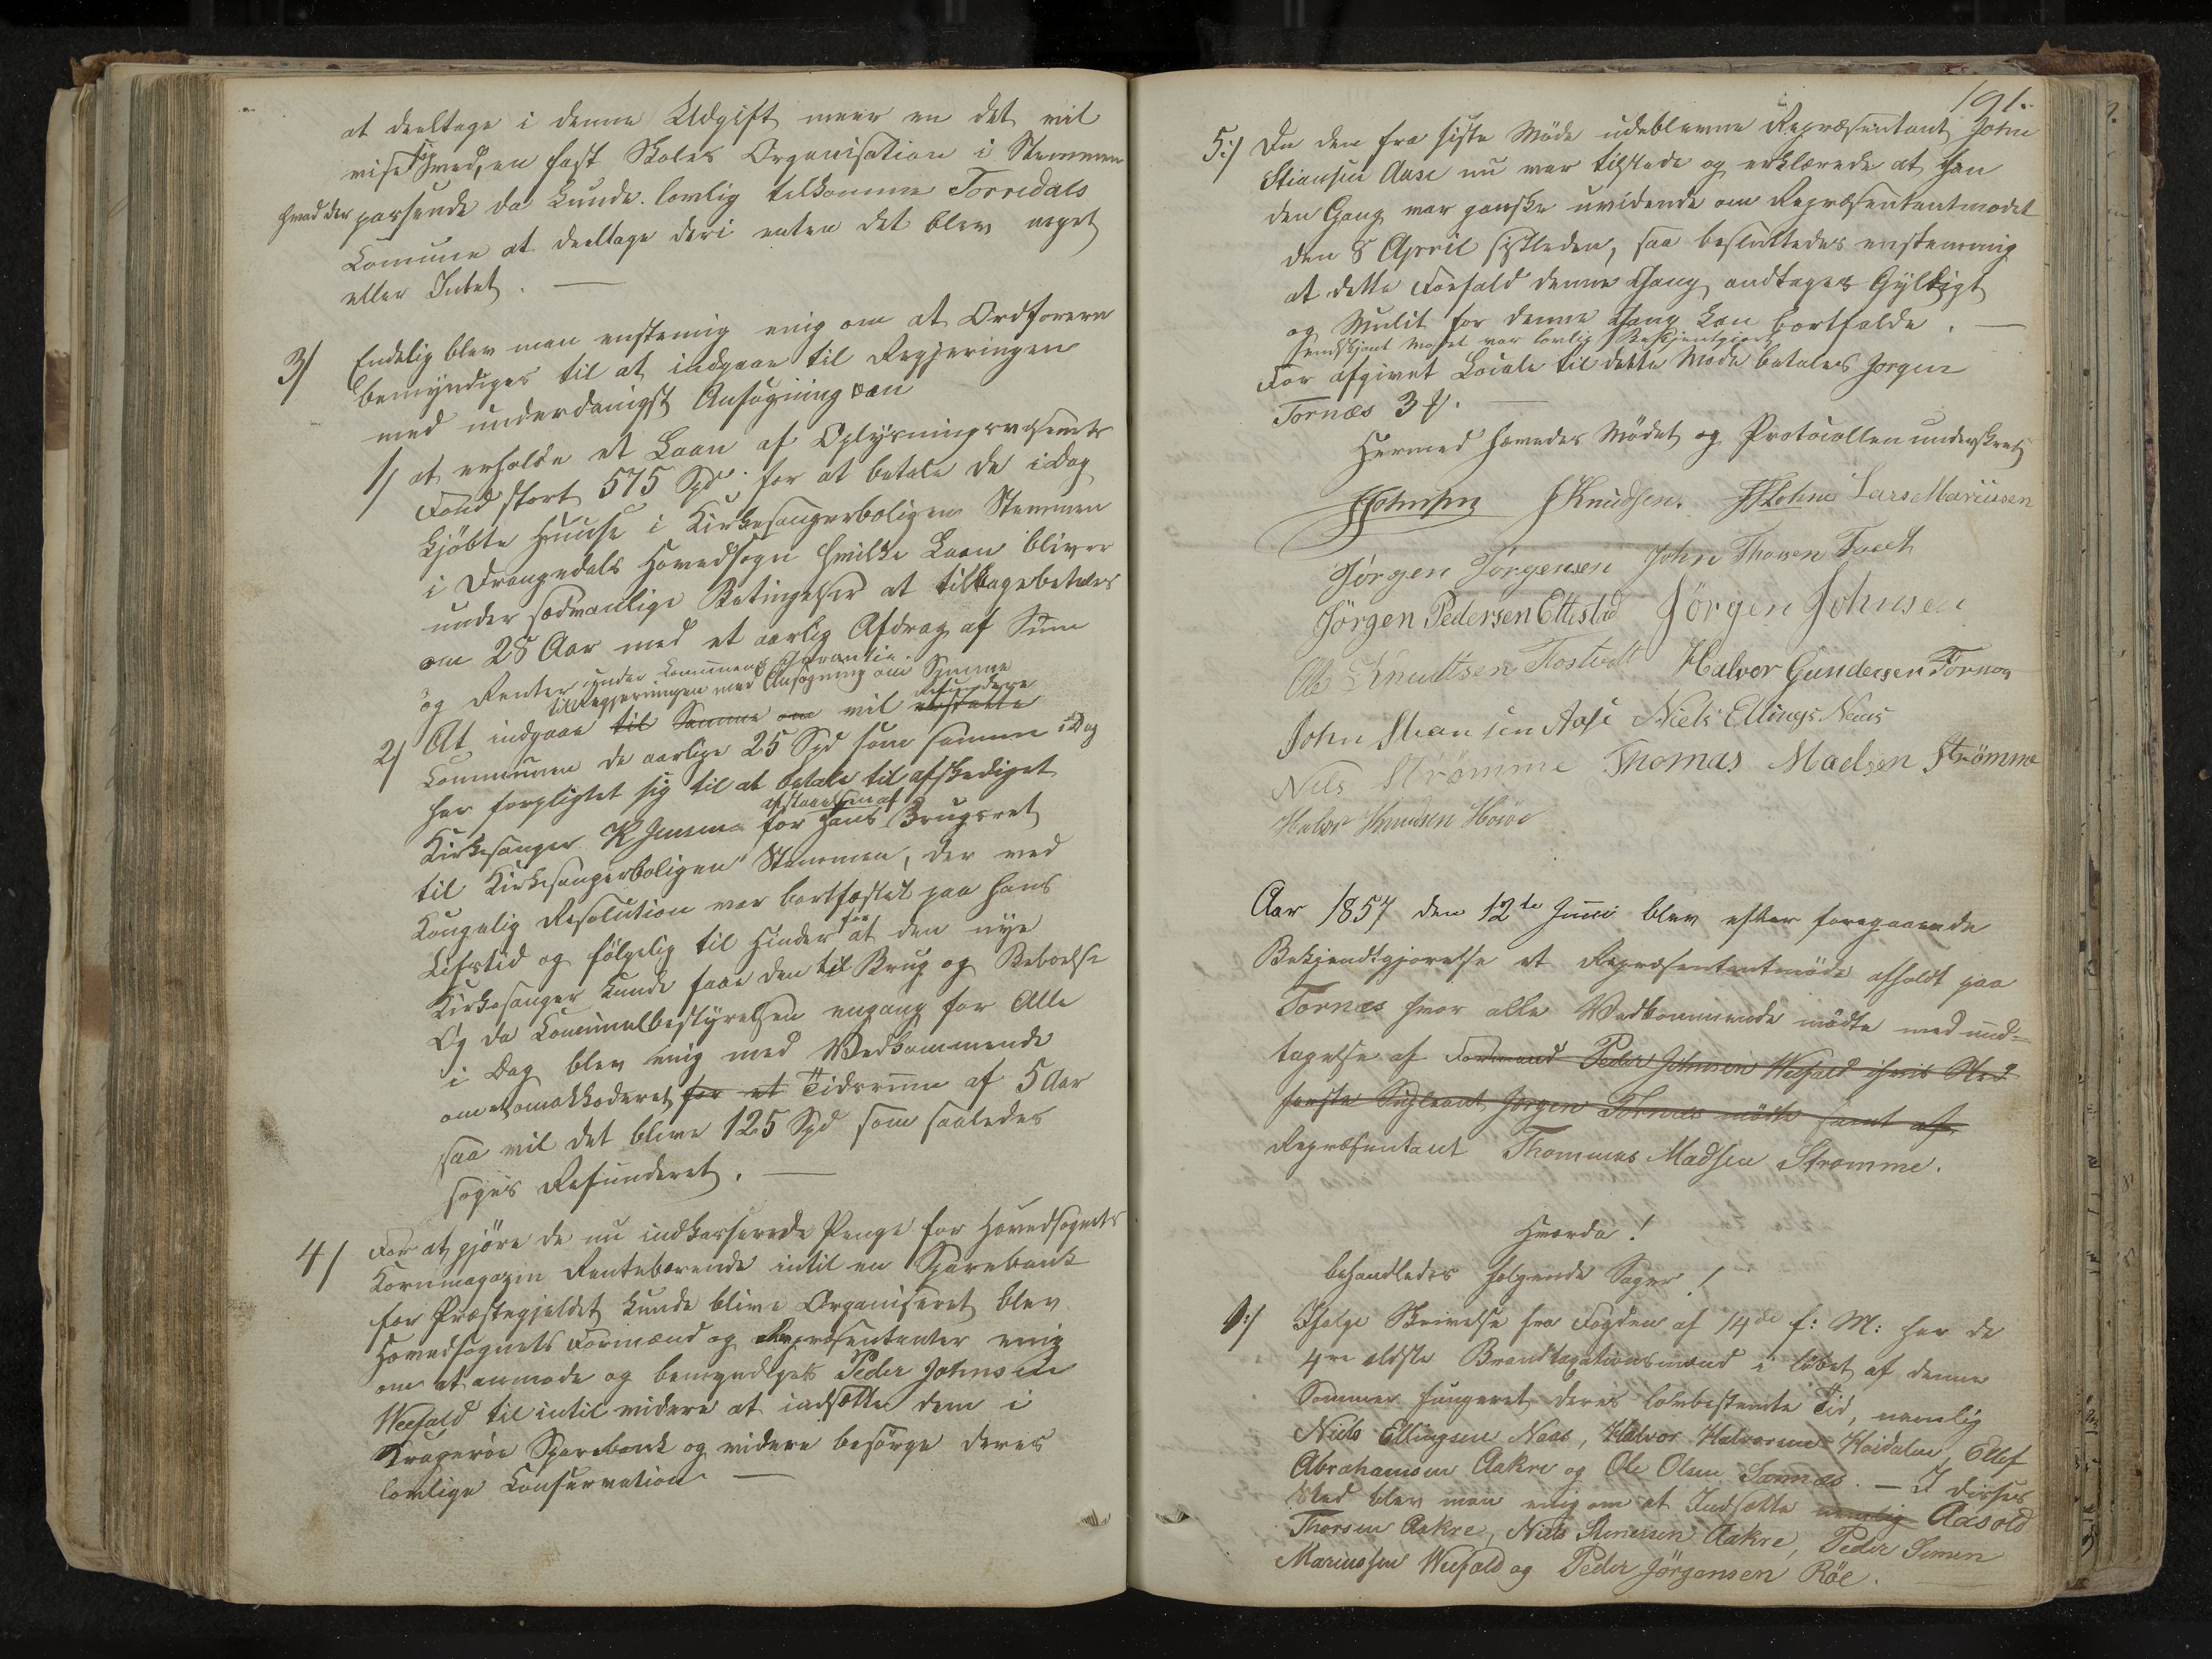 at deeltage i denne Udgift meer en det vil
vise sig ved, en fast Skoles Organisation i Stemmen
hvad der passende da kunde lovlig tilkomme Torredals
Comune at deeltage deri enten det blev noget
eller Intet. —
3/ Endelig blev man enstemig enig om at Ordforeren
bemyndiges til at indgaae til Regjeringen
med underdanigst Ansøgning om
1/ at erholde et Laan af Oplysningsvæsenets
Fond stort 575 Spd. for at betale de idag
kjøbte Huuse i Kirkesangerboligen Stemmen
i Drangedals Hovedsogn hvilke Laan bliver
under sædvanlige Betingelser at tilbagebetales
om 28 Aar med et aarlig Afdrag af Sum
og Renter under Comunens Garantie.
til Regjeringen med Ansøgning om Samme
2/ At indgaae til Samme om vil erstatte Refundere
Communen de aarlige 25 Spd som samme i Dag
har forpligtet sig til at betale til afskediget
Kirkesanger K Jensen for afstaaelsen af hans Brugsret
til Kirkesangerboligen Stemmen, der ved
Kongelig Resolution var bortfæstet paa hans
Lifstid og følgelig til Hinder for at den nye
Kirkesanger kunde faae den til Brug og Beboelse
Og da Comunalbestyrelsen engang for Alle
i Dag blev enig med Vedkommende
om et omakkoderet for et Tidsrum af 5 Aar
saa vil det blive 125 Spd som saaledes
søges Refunderet. —
4/ For at gjøre de nu indkasserede Penge for Hovedsognets
Kornmagazin Rentebærende intil en Sparebank
for Præstegjeldet kunde blive Organiseret blev
Hovedsognets Formænd og Repræsentanter enig
om at anmode og bemyndiget Peder Johnsen
Weefald til intil videre at indsætte dem i
Kragerøe Sparebank og videre besørge deres
lovlige Conservation —
191.
5:/ Da den fra siste Møde udeblevne Repræsentant John
Stiansen Aase nu var tilstede og erklærede at han
den Gang var ganske uvidende om Repræsentantmødet
den 8 April sistleden, saa besluttedes enstemmig
at dette Forfald denne Gang andtages Gyldigt
og Mulct for denne Gang kan bortfalde. —
endskjønt Mødet var lovlig Bekjentgjort
For afgivet Locale til dette Møde betales Jørgen
Tornæs 3 ₰. —
Hermed hævedes Mødet og Protocollen underskrevet
J Knudsen. Lars Mariussen
Jørgen Jørgensen John Thoresen Tvedt
Jørgen Pedersen Ettestad Jørgen Johnsen
Ole Knudtsen Halvor Gundersen Tornæs
John Stiansen Aase Niels Ellings. Næas
Nils Strømme Thomas Madsen Strømme
Halvor Knudsen
Aar 1857 den 12te Juni blev efter foregaaende
Bekjendtgjørelse et Repræsentantmøde afholdt paa
Tornæs hvor alle Vedkommende mødte med und=
tagelse af Formand Peder Johnsen Weefald i hvis Sted
første Supleant Jørgen Tornæs mødte samt af
Repræsentant Thommas Madsen Strømme.
Hvorda!
behandledes følgende Sager!
1:/ Ifølge Skrivelse fra Fogden af 14de f: M: har de
4re ældste Brandtaxationsmænd i løbet af denne
Sommer fungeret deres lovbestemte Tid, nemlig
Niels Ellingsen Naas, Halvor Halvorsen Heidalen, Ellef
Abrahamsen Aakre og Ole Olsen Sannæs. — I disses
Sted blev man enig om at Indsætte nemlig Aasold
Thorsen Aakre, Niels Simensen Aakre, Peder Simen
Mariussen Weefald og Peder Jørgensen Röe.